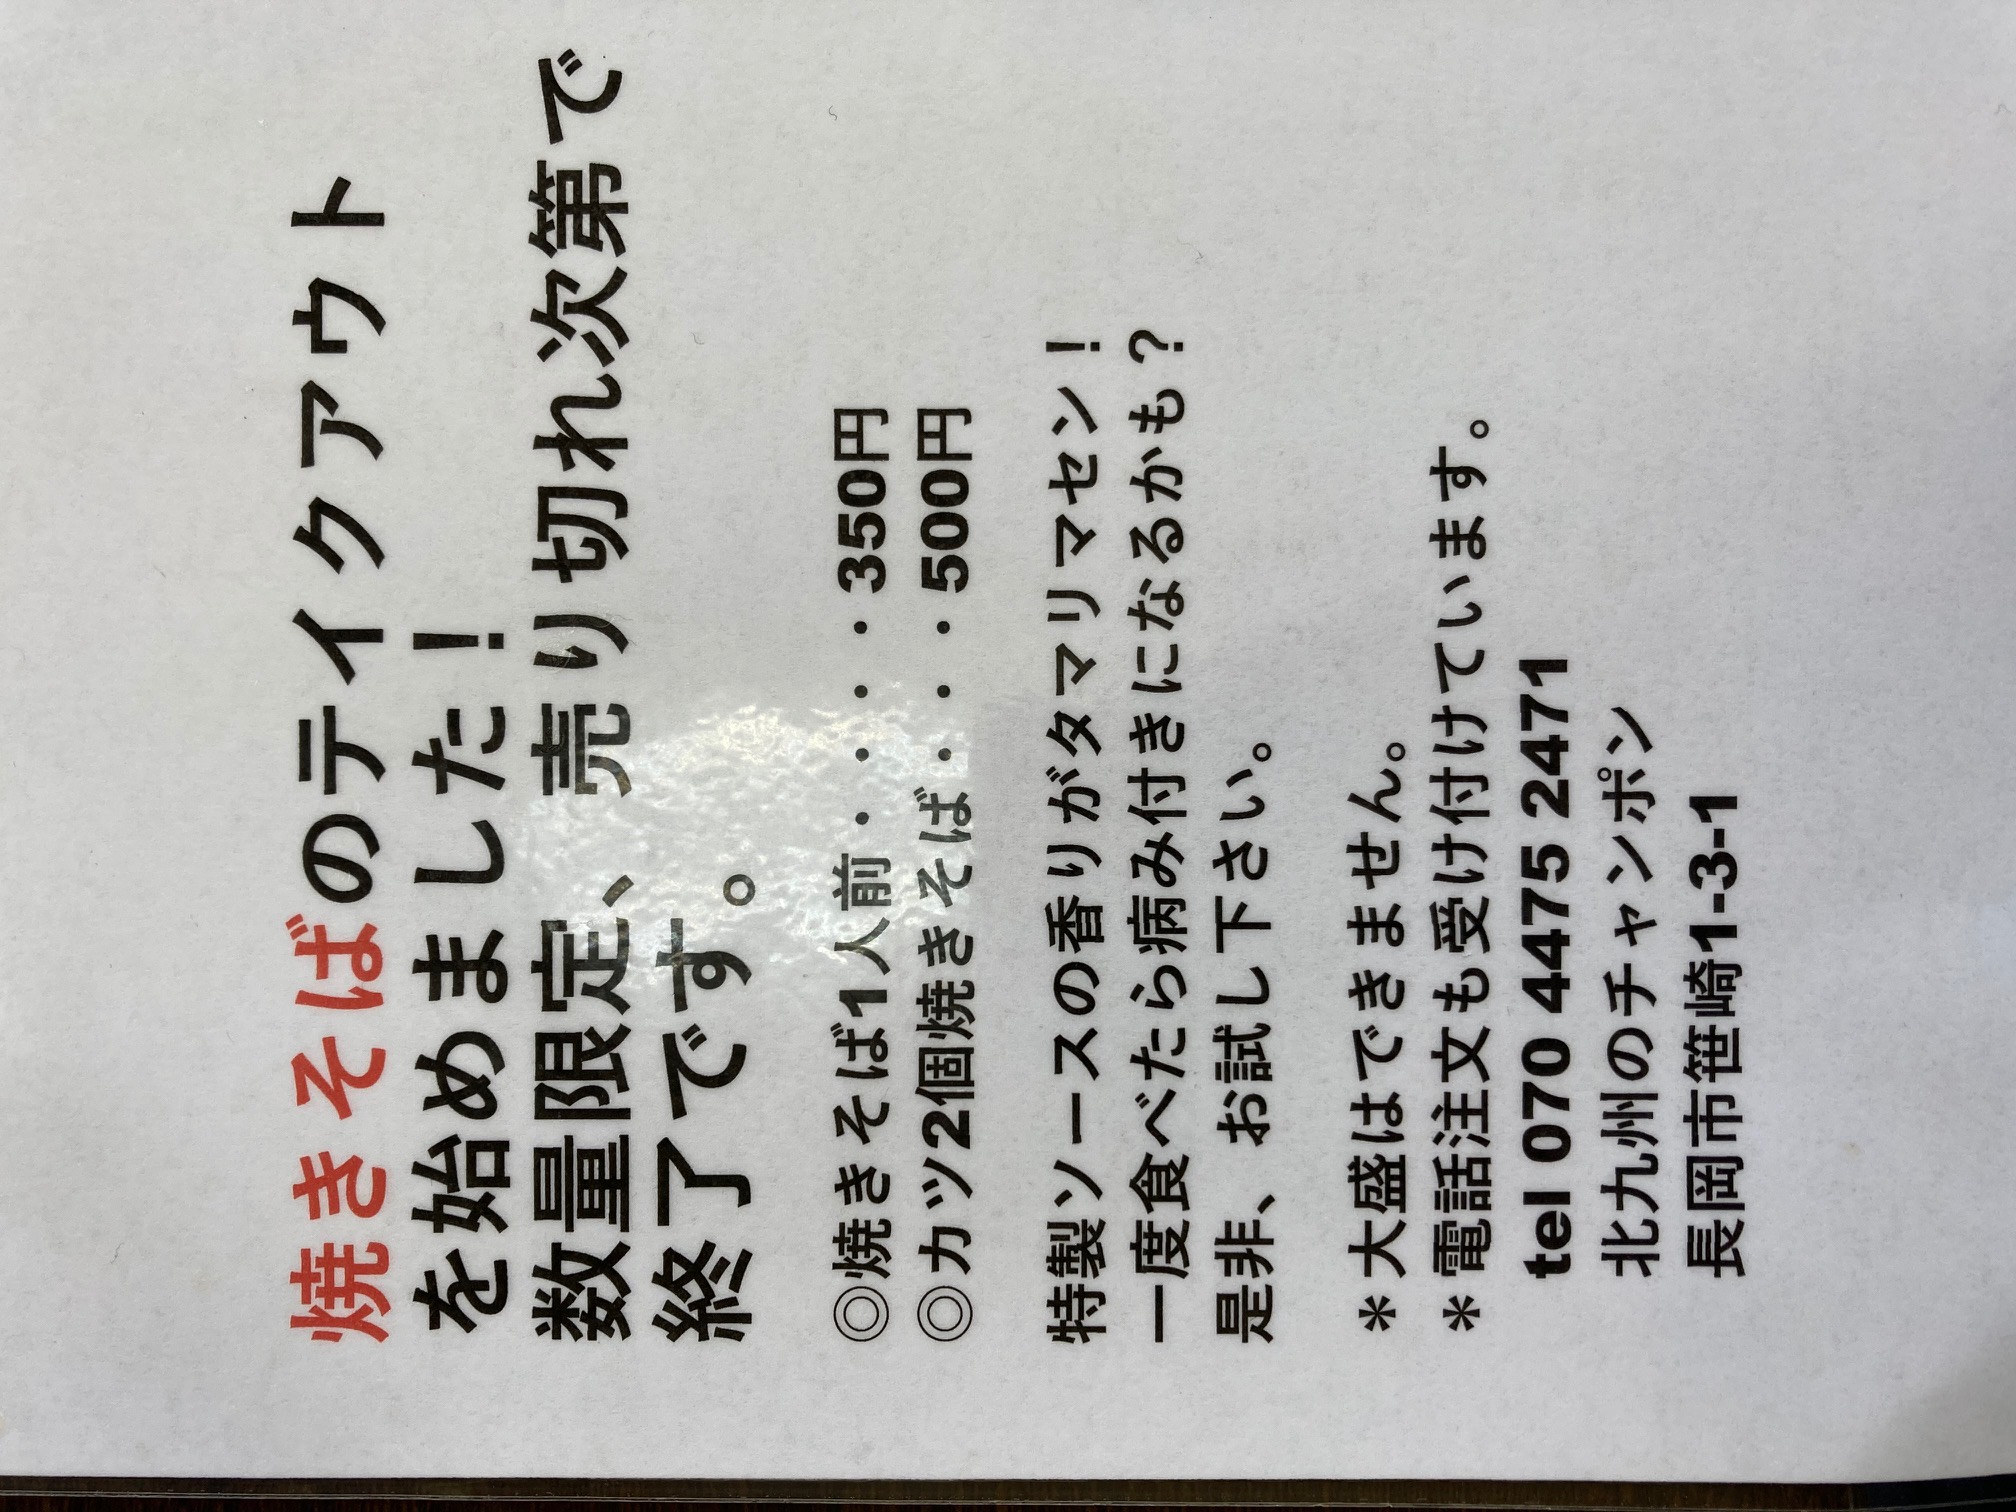 焼きそばのテイクアウト
を始めました!
数量限定、売り切れ次第で
終了です。
◎焼きそば1人前・・・・350円
◎カツ2個焼きそば・・・500円
特製ソースの香りがタマリマセン!
一度食べたら病み付きになるかも?
是非、お試し下さい。
*大盛はできません。
*電話注文も受け付けています。
tel 070 4475 2471
北九州のチャンポン
長岡市笹崎1-3-1